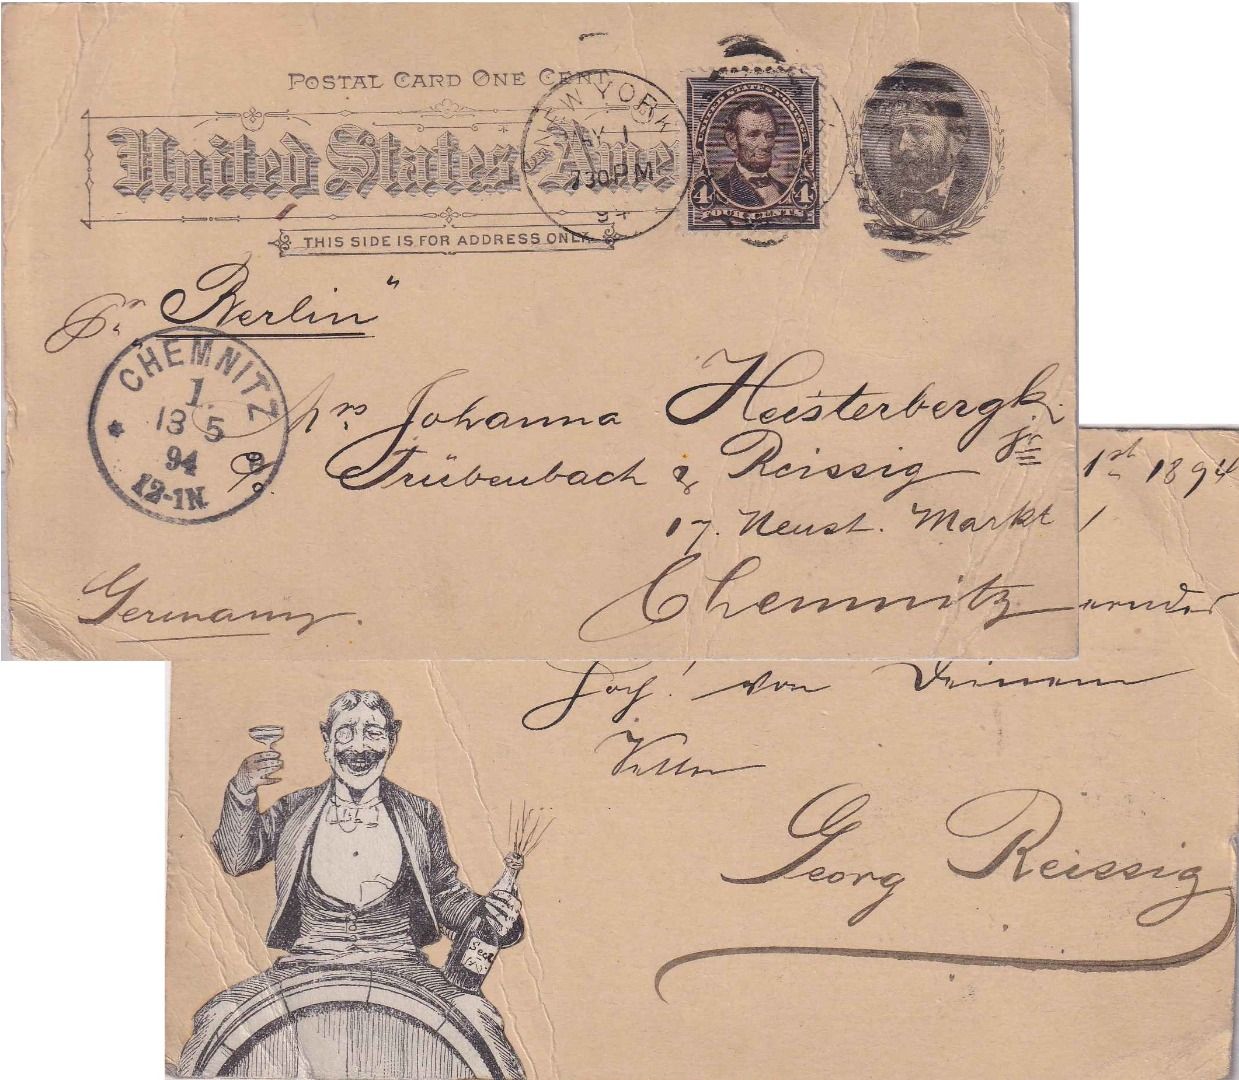 POSTAL CARD ONE CENT.
United States Ame
THIS SIDE IS FOR ADDRESS ONLY.
NEW YORK
MY 1
730PM
94
UNITED STATES POSTAGE
4 4
FOUR CENTS
Pr "Berlin"
CHEMNITZ
1.
13 5
94
12-1N.
Mrs Johanna Heisterbergk
p. a. Trübenbach & Reissig jr
17. Neust. Markt
Chemnitz
Germany.
1st 1894
Hoch! von Deinem
Vetter
Georg Reissig
Sect